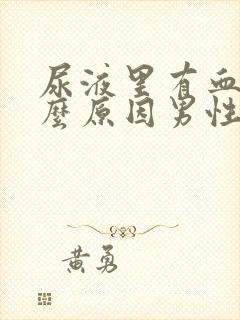 尿液里有血
麽原因男性
黄勇